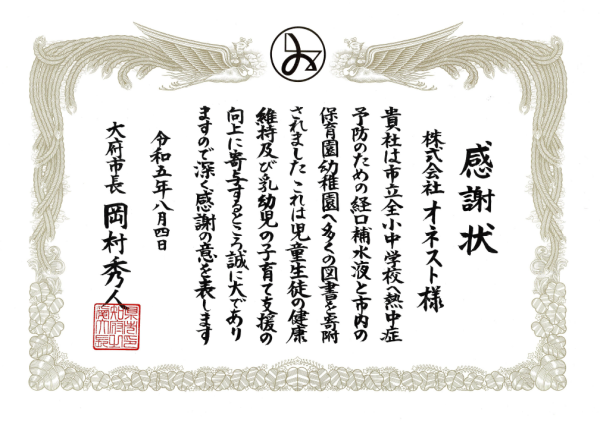 感謝状
株式会社 オネスト様
貴社は市立全小中学校へ熱中症
予防のための経口補水液と市内の
保育園幼稚園へ多くの図書を寄附
されました これは児童生徒の健康
維持及び乳幼児の子育て支援の
向上に寄与するところ誠に大であり
ますので深く感謝の意を表します
令和五年八月四日
大府市長 岡村秀人